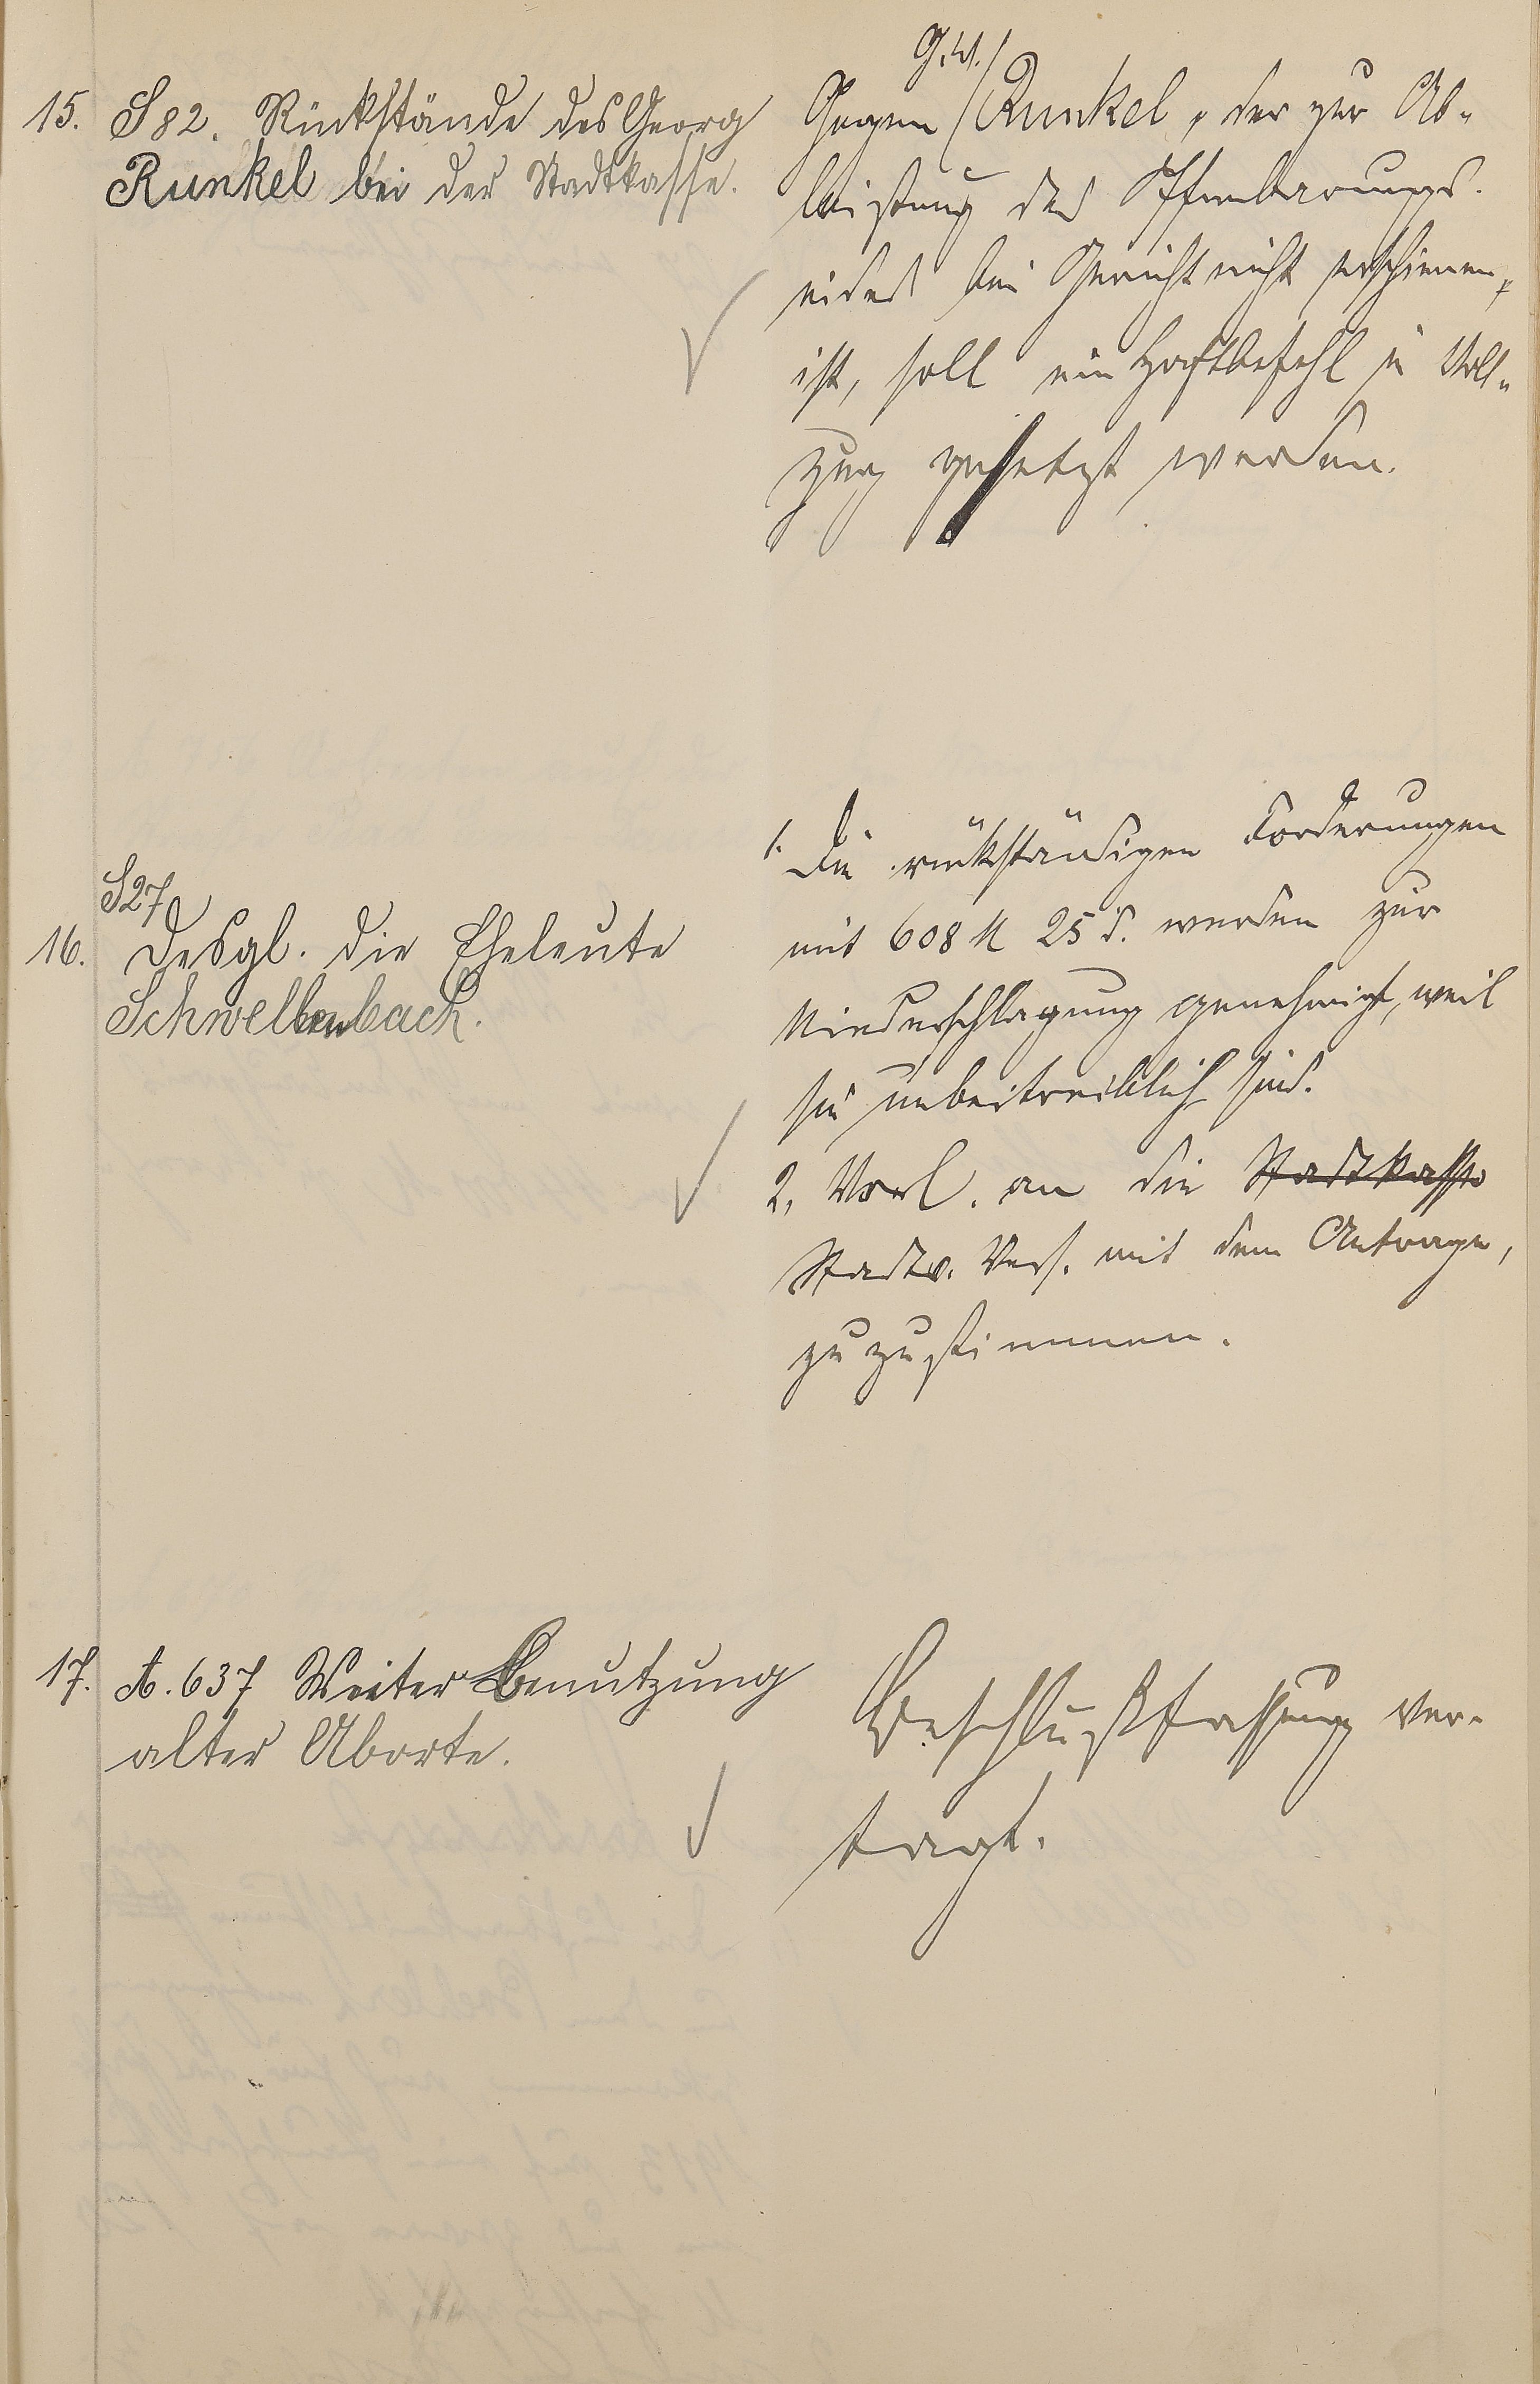 15. S 82. Rückstände des Georg
Runkel bei der Stadtkasse.
G. W.
Gegen Runkel, der zur Ab-
leistung des Offenbarungs-
eides bei Gericht nicht erschienen
ist, soll ein Haftbefehl in Voll-
zug gesetzt werden.
S 27
16. Desgl. die Eheleute
Schwellenbach.
1. Die rückständigen Forderungen
mit 608 M 25 d. werden zur
Niederschlagung genehmigt, weil
sie unbeitreiblich sind.
2. Vorl. an die Stadtkasse
Stadtv. Vers. mit dem Antrage,
zuzustimmen.
17. A. 637 Weiter Benutzung
alter Aborte.
Beschlußfassung ver-
tagt.